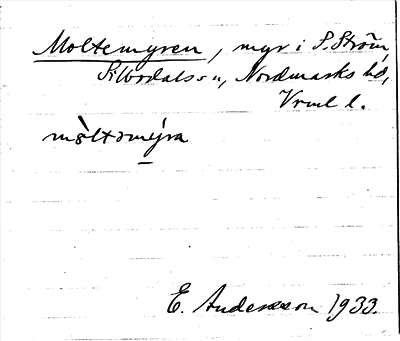 Moltemyren, myr i S. Ström,
Silbodals sn, Nordmarks hd,
Vrml l.
mòltəmýra
E. Andersson 1933.